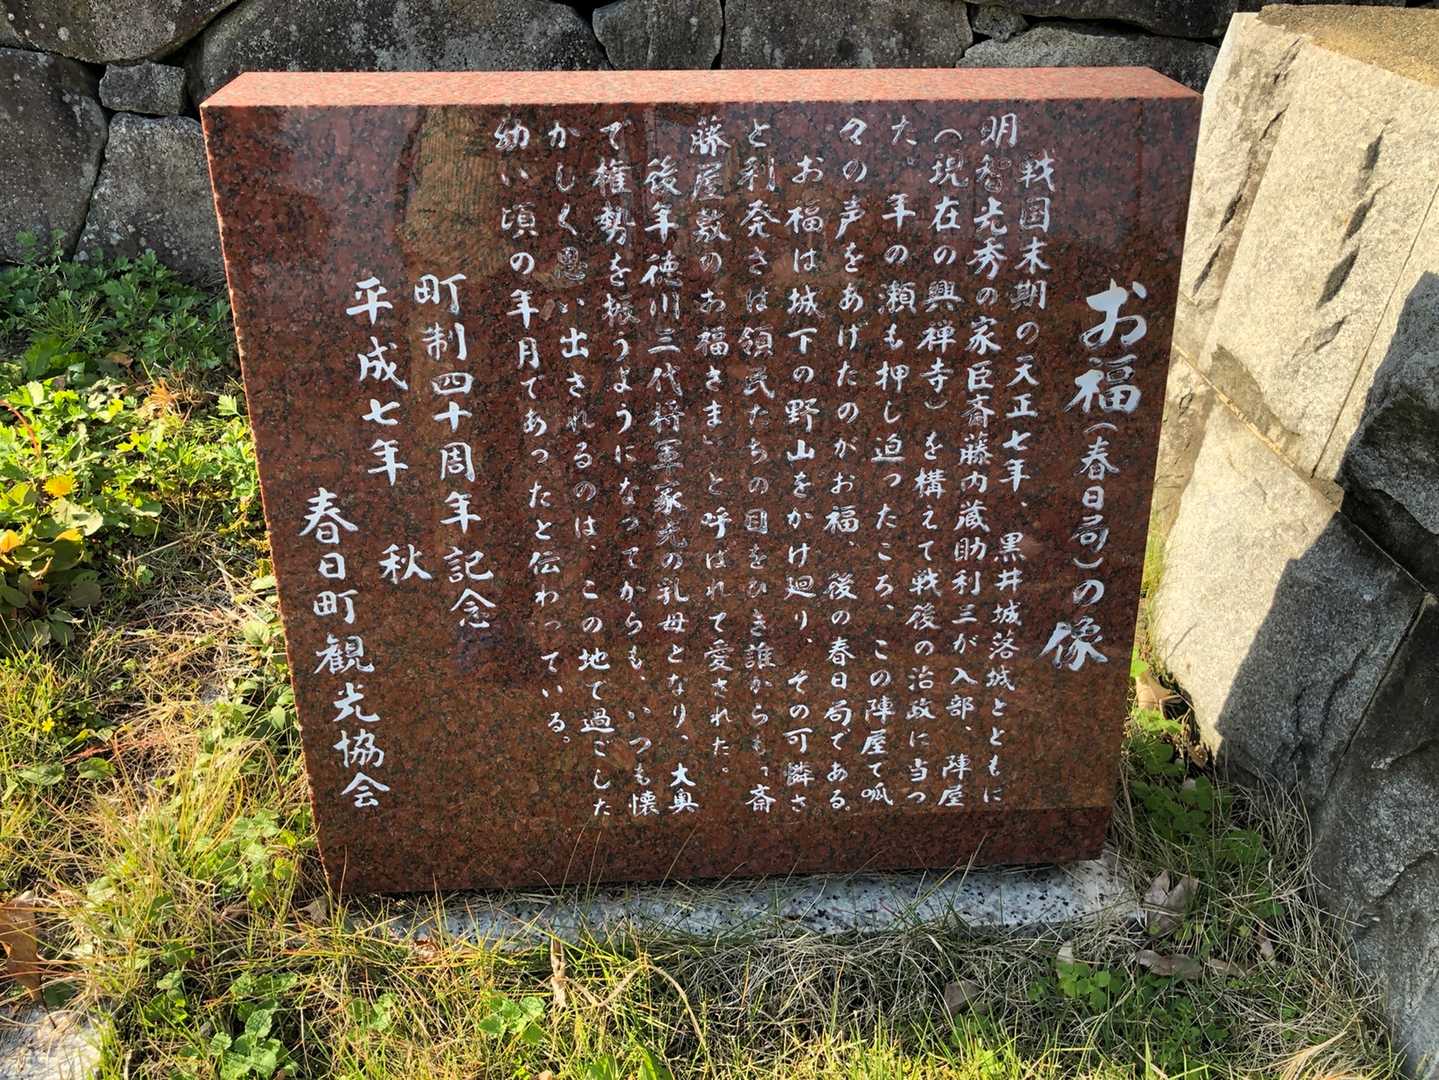 お福(春日局)の像
戦国末期の天正七年、黒井城落城とともに
明智光秀の家臣斎藤内蔵助利三が入部、陣屋
(現在の興禅寺)を構えて戦後の治政に当つ
た。年の瀬も押し迫ったころ、この陣屋で呱
々の声をあげたのがお福、後の春日局である。
お福は城下の野山をかけ廻り、その可憐さ
と利発さは領民たちの目をひき誰からも、「斎
藤屋敷のお福さま」と呼ばれて愛された。
後年徳川三代将軍家光の乳母となり、大奥
で権勢を振うようになってからも、いつも懐
かしく思い出されるのは、この地で過ごした
幼い頃の年月であったと伝わっている。
町制四十周年記念
平成七年 秋
春日町観光協会